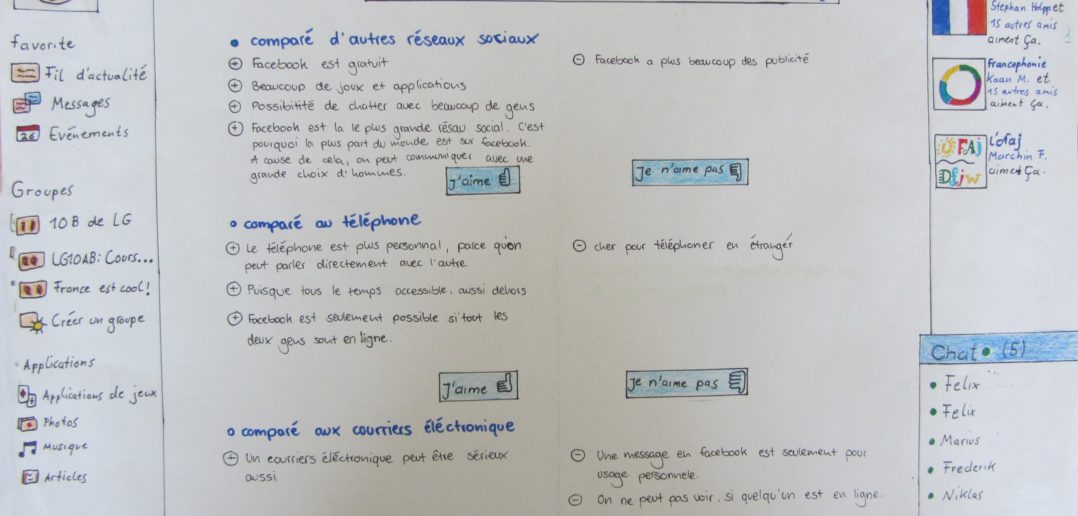 favorite
Fil d'actualité
Messages
Evénements
Groupes
10B de LG
LG10AB: Cours...
France est cool!
Créer un groupe
Applications
Applications de jeux
Photos
Musique
Articles
comparé d'autres réseaux sociaux
Facebook est gratuit
Beaucoup de joux et applications
Possibilité de chatter avec beaucoup de gens
Facebook est la le plus grande résau social. C'est
pourquoi la plus part du monde est sur facebook.
A cause de cela, on peut communiquer avec une
grande choix d'hommes.
J'aime
Facebook a plus beaucoup des publicité
Je n'aime pas
comparé au téléphone
Le téléphone est plus personnal, parce qu'on
peut parler directement avec l'autre.
Puisque tous le temps accessible, aussi dehors
Facebook est seulement possible si tout les
deux gens sont en ligne.
J'aime
cher pour téléphoner en étranger
Je n'aime pas
comparé aux courriers éléctronique
Un courriers éléctronique peut être sérieux
aussi
Une message en facebook est seulement pour
usage personnele.
On ne peut pas voir, si quelqu'un est en ligne.
Stephan Holpp et
15 autres amis
aiment ça.
francophonie
Kaan M. et
15 autres amis
aiment ça.
OFAJ
DFJW
L'ofaj
Marchin F.
aiment ça.
Chat (5)
Felix
Felix
Marius
Frederik
Niklas